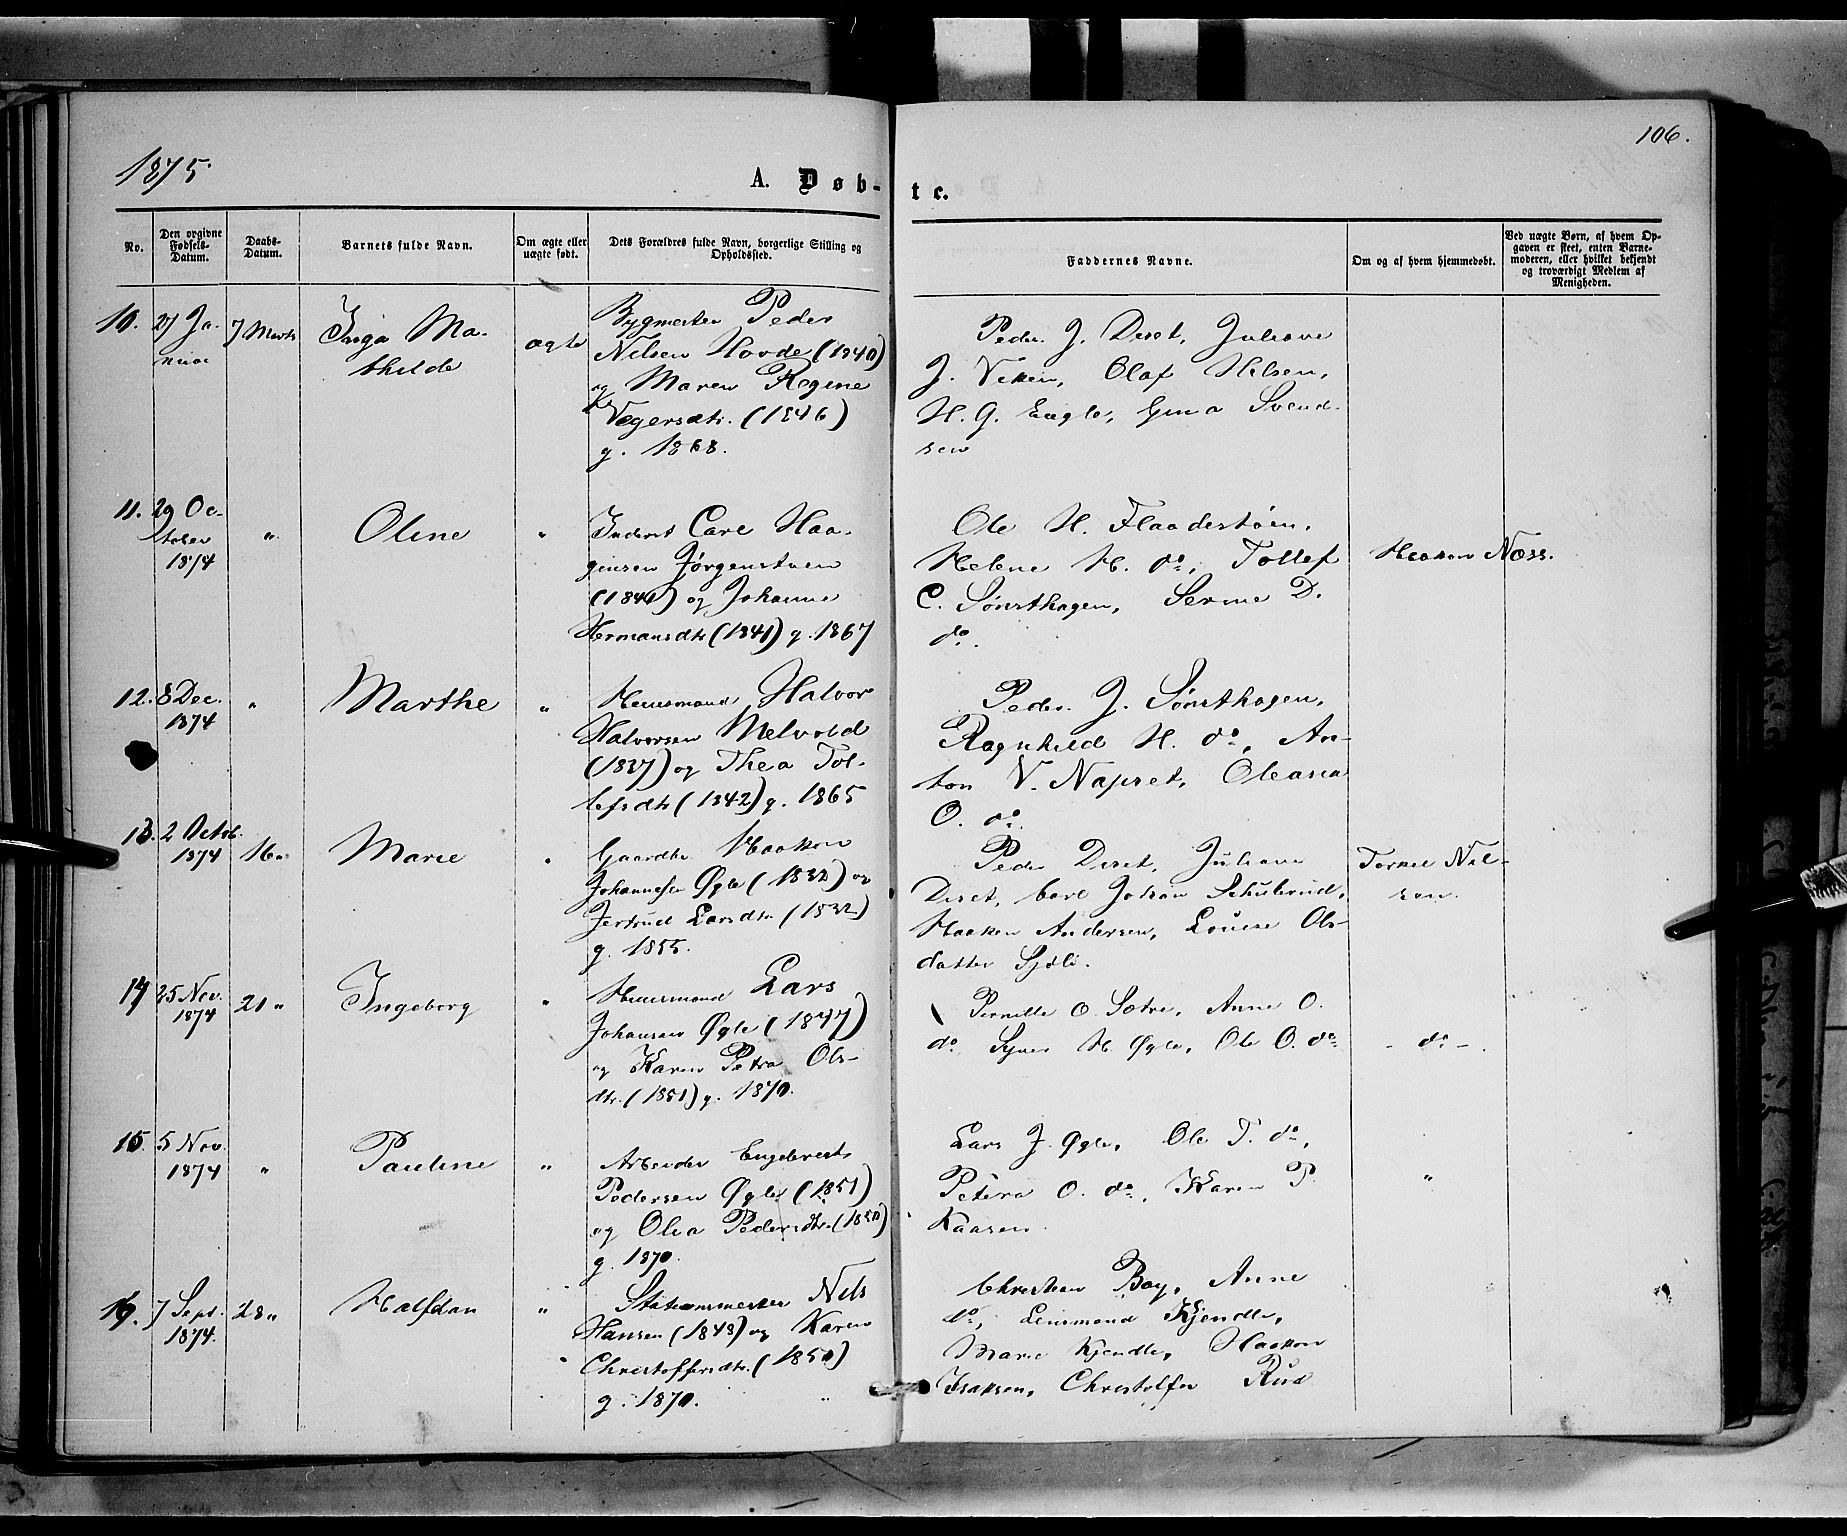 106.
1875
A. Døb-
te.
No.
Den opgivne Fødsels-Datum.
Daabs-Datum.
Barnets fulde Navn.
Om ægte eller uægte født.
Dets Forældres fulde Navn, borgerlige Stilling og Opholdssted.
Faddernes Navne.
Om og af hvem hjemmedøbt.
Ved uægte Børn, af hvem Op-
gaven er skeet, enten Barne-
moderen, eller hvilket bekjendt
og troværdigt Medlem af
Menigheden.
10. 27 Ja-
nuar
7 Marts
Inga Ma-
thilde
ægte
Bygmester Peder
Nielsen Hovde (1840)
og Maren Regine
Vegersdtr. (1846)
g. 1868.
Peder J. Diset, Juliane
J. Vikken, Olaf Nilsen,
H. G. Eagle, Gina Svend-
sen
11. 29 Oc-
tober
1874
"
Oline
"
Inderst Carl Haa-
gensen Jørgenstuen
(1840) og Johanne
Hermansdtr (1841) g. 1867
Ole H. Flaadestøen,
Helene H. do, Tollef
C. Sønsthagen, Serine D.
do.
Haakon Næss.
12. 8 Dec.
1874
"
Marthe
"
Huusmand Halvor
Halvorsen Melvold
(1837) og Thea Tol-
lefsdtr (1842) g. 1865
Peder J. Sønsthagen,
Ragnhild H. do, An-
ton V. Napset, Oleana
O. do.
13. 2 Octob.
1874
16 "
Marie
"
Gaardbr. Haakon
Johannesen Øgle (1832) og
Jertrud Larsdtr. (1832)
g. 1855.
Peder Diset, Juliane
Diset, Carl Johan Schulerud,
Haaken Andersen, Louise Ols-
datter Sjøli.
Torkel Nil-
sen.
14 25 Nov.
1874
21 "
Ingeborg
"
Huusmand Lars
Johansen Øgle (1847)
og Karen Petra Ols-
dtr. (1851) g. 1870.
Pernille O. Sætre, Anne O.
do, Syver H. Øgle, Ole O. do
- do -.
15. 5 Nov.
1874
"
Pauline
"
Arbeider Engebret
Pedersen Øgle (1851)
og Olia Pedersdtr. (1850)
g. 1870.
Lars J. Øgle, Ole T. do,
Petera O. do, Karen P.
Kaasen.
"
16. 7 Sept.
1874.
28 "
Halfdan
"
Stationsmester Nils
Hansen (1848) og Karen
Christoffersdtr. (1850)
g. 1870.
Christian Bay, Anne
do, Lensmand Kjendle,
Marie Kjendle, Haakon
Isaksen, Christoffer Rud